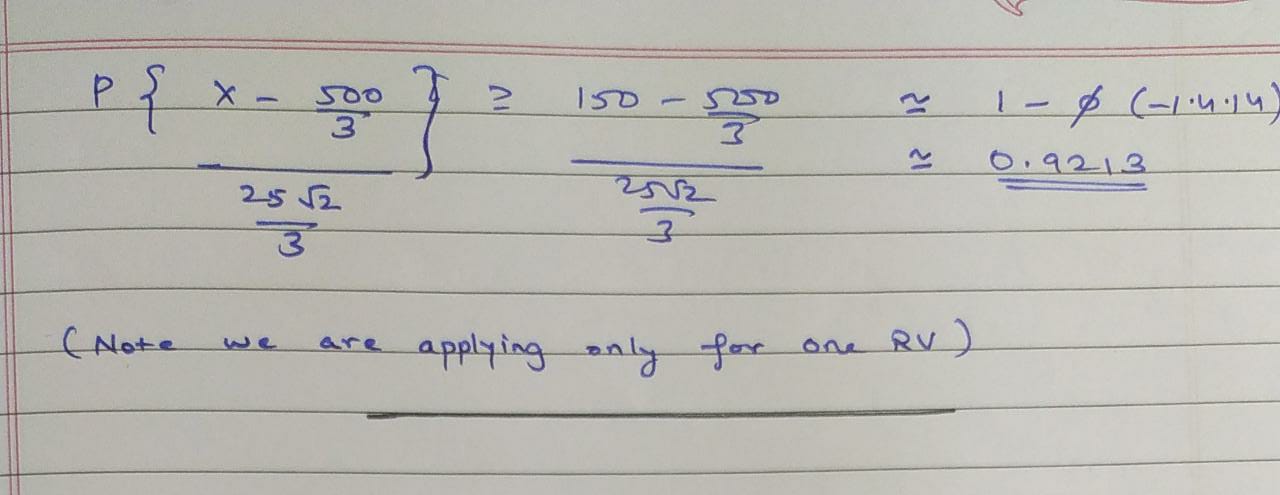 P { X - 500/3 / 25√2/3 } ≥ 150 - 500/3 / 25√2/3 ≈ 1 - ϕ (-1.4.14)
≈ 0.9213
(Note we are applying only for one RV)